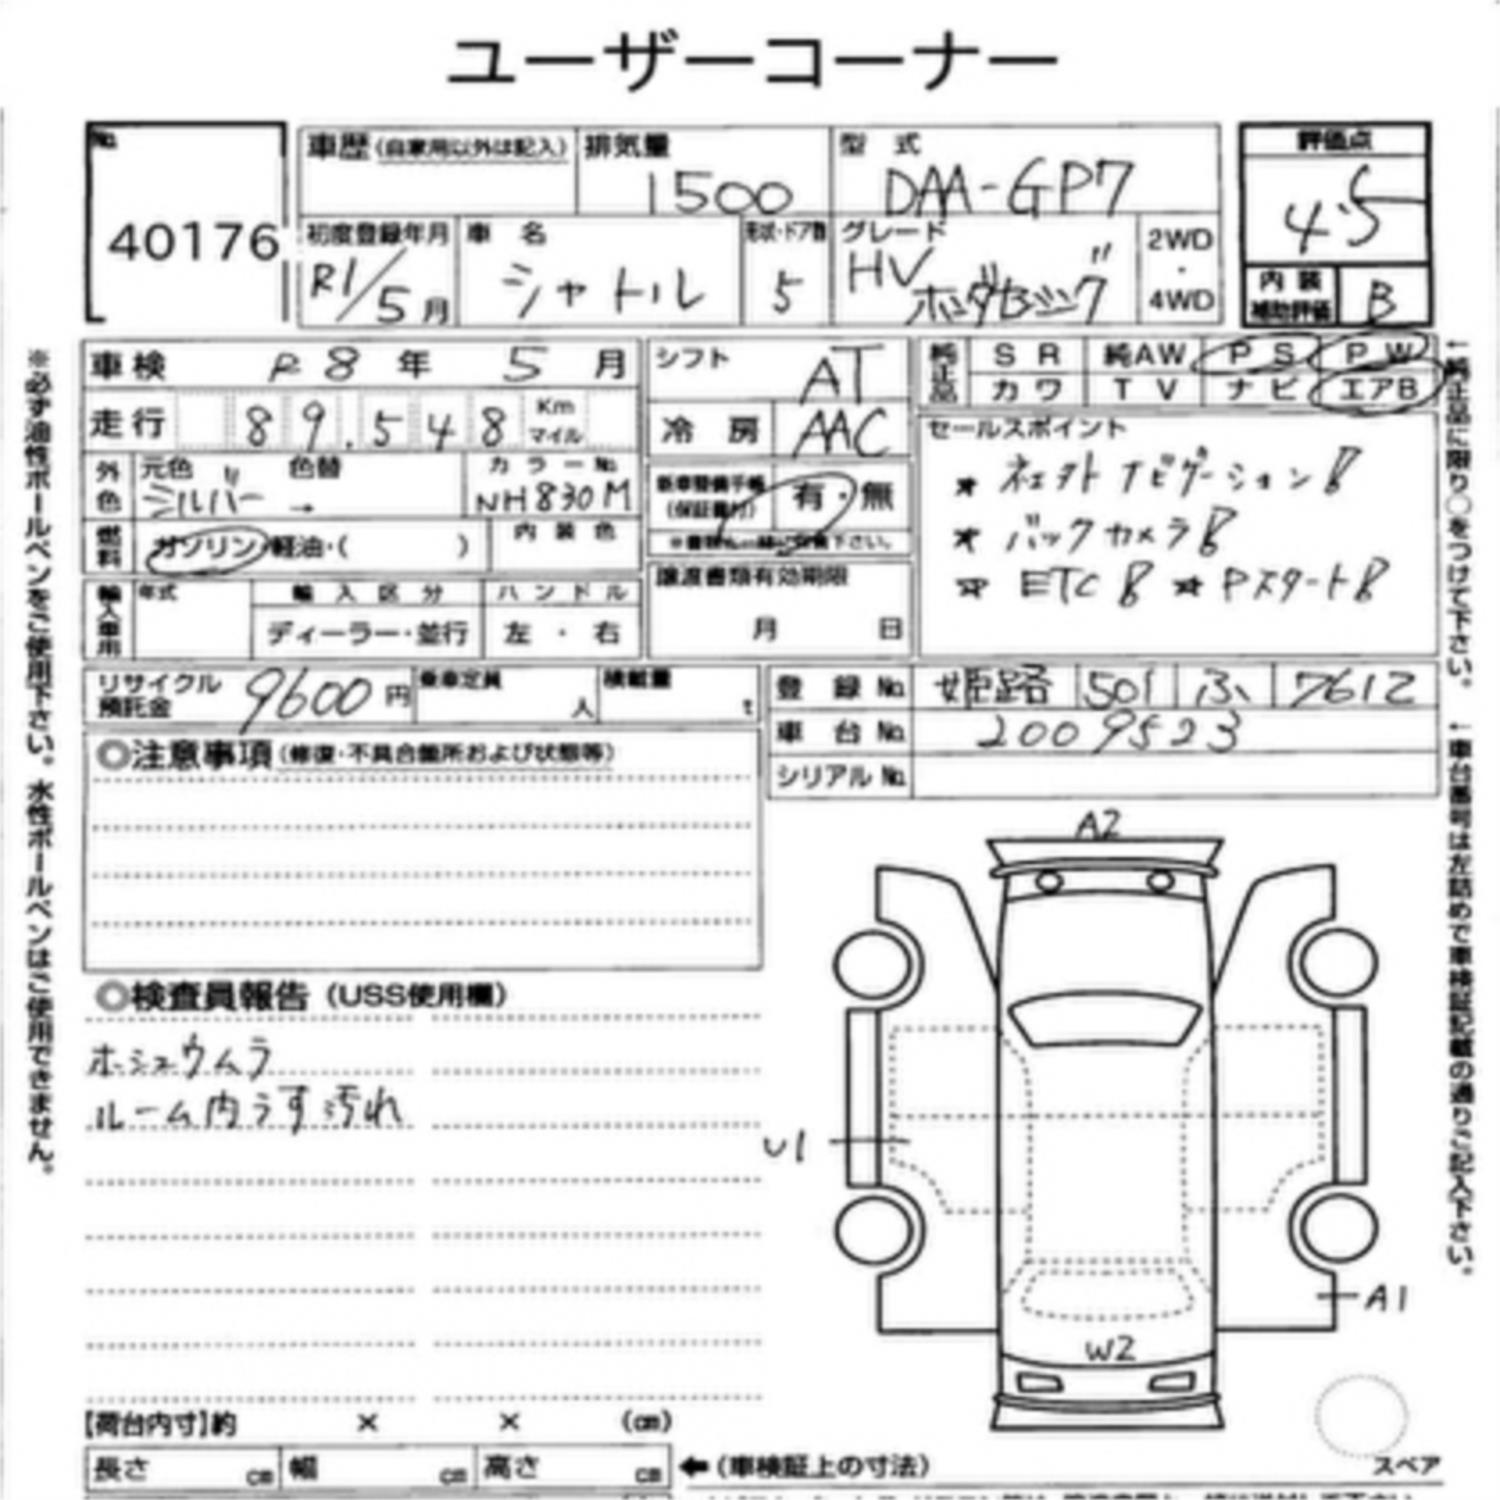 ユーザーコーナー
No.
40176
車歴(自家用以外は記入)
排気量
1500
型式
DAA-GP7
評価点
4.5
初度登録年月
R1/5月
車名
シャトル
形状・ドア数
5
グレード
HV
ホンダセンシング
2WD
・
4WD
内装
補助評価
B
車検 R8年 5月
シフト AT
純正品
SR 純AW PS PW
カワ TV ナビ エアB
走行 89.548 Km マイル
冷房 AAC
セールスポイント
外色
元色 色替
シルバー →
カラーNo.
NH830M
新車整備手帳
(保証書付)
有・無
バックカメラ
ETC Pスタート
燃料
ガソリン・軽油・( )
内装色
輸入車用
年式
輸入区分
ハンドル
ディーラー・並行
左・右
譲渡書類有効期限
月 日
リサイクル
預託金
9600円
乗車定員
人
積載量
t
登録No. 姫路 501 ふ 7612
車台No. 2009523
シリアルNo.
◎注意事項(修復・不具合箇所および状態等)
◎検査員報告(USS使用欄)
ホシュウムラ
ルーム内うす汚れ
A2
U1
A1
W2
スペア
【荷台内寸】約 × × (cm)
長さ cm 幅 cm 高さ cm
←(車検証上の寸法)
※必ず油性ボールペンをご使用下さい。水性ボールペンはご使用できません。
←純正品に限り○をつけて下さい。
←車台番号は左詰めで車検証記載の通りご記入下さい。